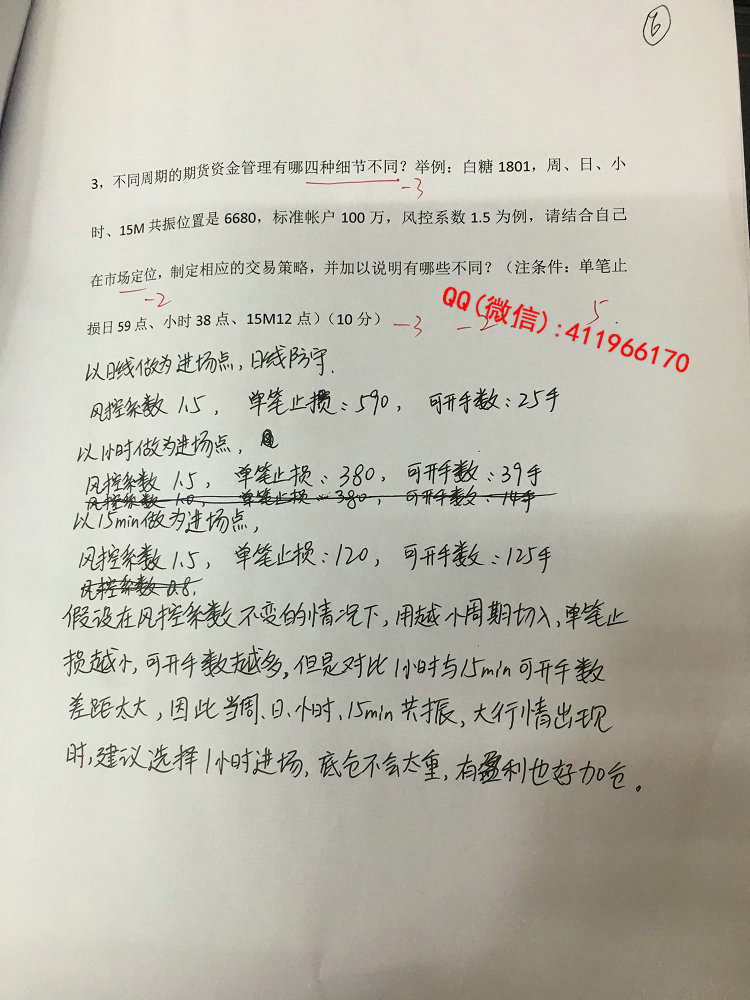 6
3，不同周期的期货资金管理有哪四种细节不同？举例：白糖 1801，周、日、小
-3
时、15M 共振位置是 6680，标准帐户 100 万，风控系数 1.5 为例，请结合自己
在市场定位，制定相应的交易策略，并加以说明有哪些不同？（注条件：单笔止
-2
QQ(微信):411966170
5.
损日 59 点、小时 38 点、15M12 点）（10 分）
-3
以日线做为进场点，日线防守.
风控系数 1.5， 单笔止损：590， 可开手数：25手
以1小时做为进场点，
风控系数 1.5， 单笔止损：380， 可开手数：39手
风控系数 1.0， 单笔止损：380， 可开手数：14手
以15min做为进场点，
风控系数 1.5， 单笔止损：120， 可开手数：125手
风控系数 0.8.
假设在风控系数不变的情况下，用越小周期切入，单笔止
损越小，可开手数越多，但是对比1小时与15min可开手数
差距太大，因此当周、日、小时、15min共振，大行情出现
时，建议选择1小时进场，底仓不会太重，有盈利也好加仓。